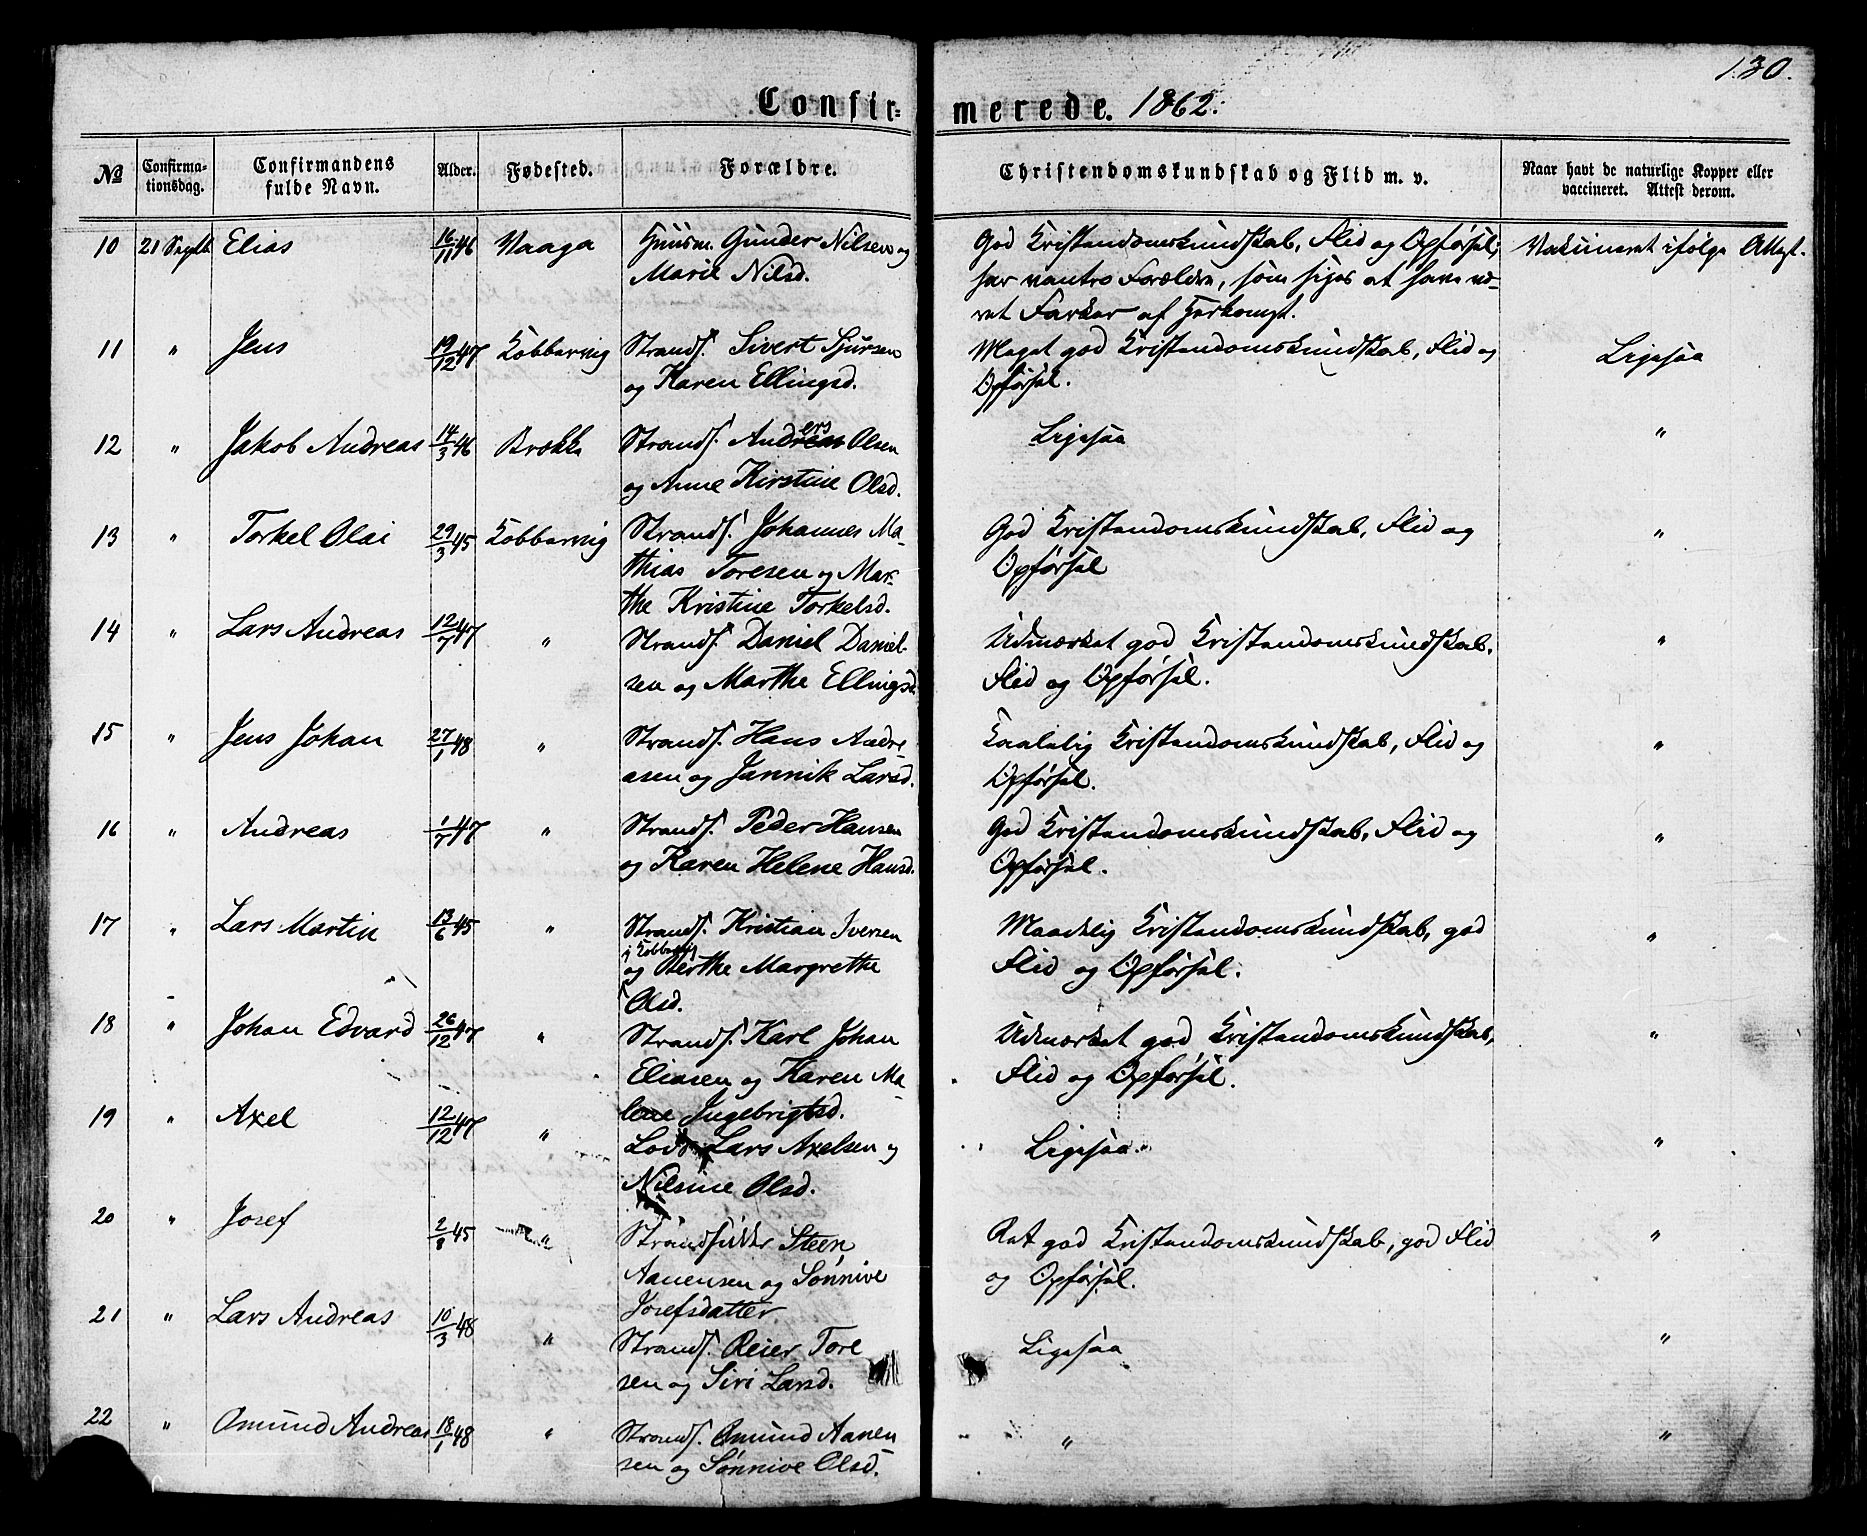 130.
Confir- merede. 1862.
No Confirma-tionsdag. Confirmandens fulde Navn. Alder. Fødested. Forældre. Christendomskundskab og Flid m. v. Naar havt de naturlige Kopper eller vaccineret. Attest derom.
10 21 Septb Elias 16/11 46 Vaaga Huusm. Gunder Nilsen og
Marie Nilsd.
God Kristendomskundskab, Flid og Opførsel;
har vantro Forældre, som siges at have væ-
ret Farker af Herkomst.
Vakcineret ifølge Attest.
11 " Jens 19/12 47 Kobbervig Strands. Sivert Sjursen
og Karen Ellingsd.
Meget god Kristendomskundskab, Flid og
Opførsel.
Ligesaa
12 " Jakob Andreas 14/3 46 Brekke Strands. Anders Olsen
og Anne Kirstine Olsd.
Ligesaa
"
13 " Torkel Olai 29/3 45 Kobbervig Strands. Johannes Ma-
thias Toresen og Mar-
the Kristine Torkelsd.
God Kristendomskundskab, Flid og
Opførsel
"
14 " Lars Andreas 12/7 47 " Strands. Daniel Daniel-
sen og Marthe Ellingsd
Udmærket god Kristendomskundskab,
Flid og Opførsel.
"
15 " Jens Johan 27/1 48 " Strands. Hans Andre
asen og Jannik Larsd.
Taalelig Kristendomskundskab, Flid og
Opførsel.
"
16 " Andreas 1/7 47 " Strands. Peder Hansen
og Karen Helene Hansd.
God Kristendomskundskab, Flid og
Opførsel.
"
17 " Lars Martin 13/6 45 " Strands. Kristian Iversen
i Kobbervig
og Berthe Margrethe
Olsd.
Maadelig Kristendomskundskab, god
Flid og Opførsel.
"
18 " Johan Edvard 26/12 47 " Strands. Karl Johan
Eliasen og Karen Ma-
lene Ingebrigtsd.
Udmærket god Kristendomskundskab,
Flid og Opførsel.
"
19 " Axel 12/12 47 " Lods Lars Axelsen og
Nilsine Olsd.
Ligesaa.
"
20 " Josef 2/8 45 " Strandsidder Steen
Aanensen og Sønnive
Josefsdatter.
Ret god Kristendomskundskab, god Flid
og Opførsel.
"
21 " Lars Andreas 10/3 48 " Strands. Reier Tore
sen og Siri Larsd.
Ligesaa
"
22 " Omund Andreas 18/1 48 " Strands. Omund Aanen
sen og Sønnive Olsd.
"
"